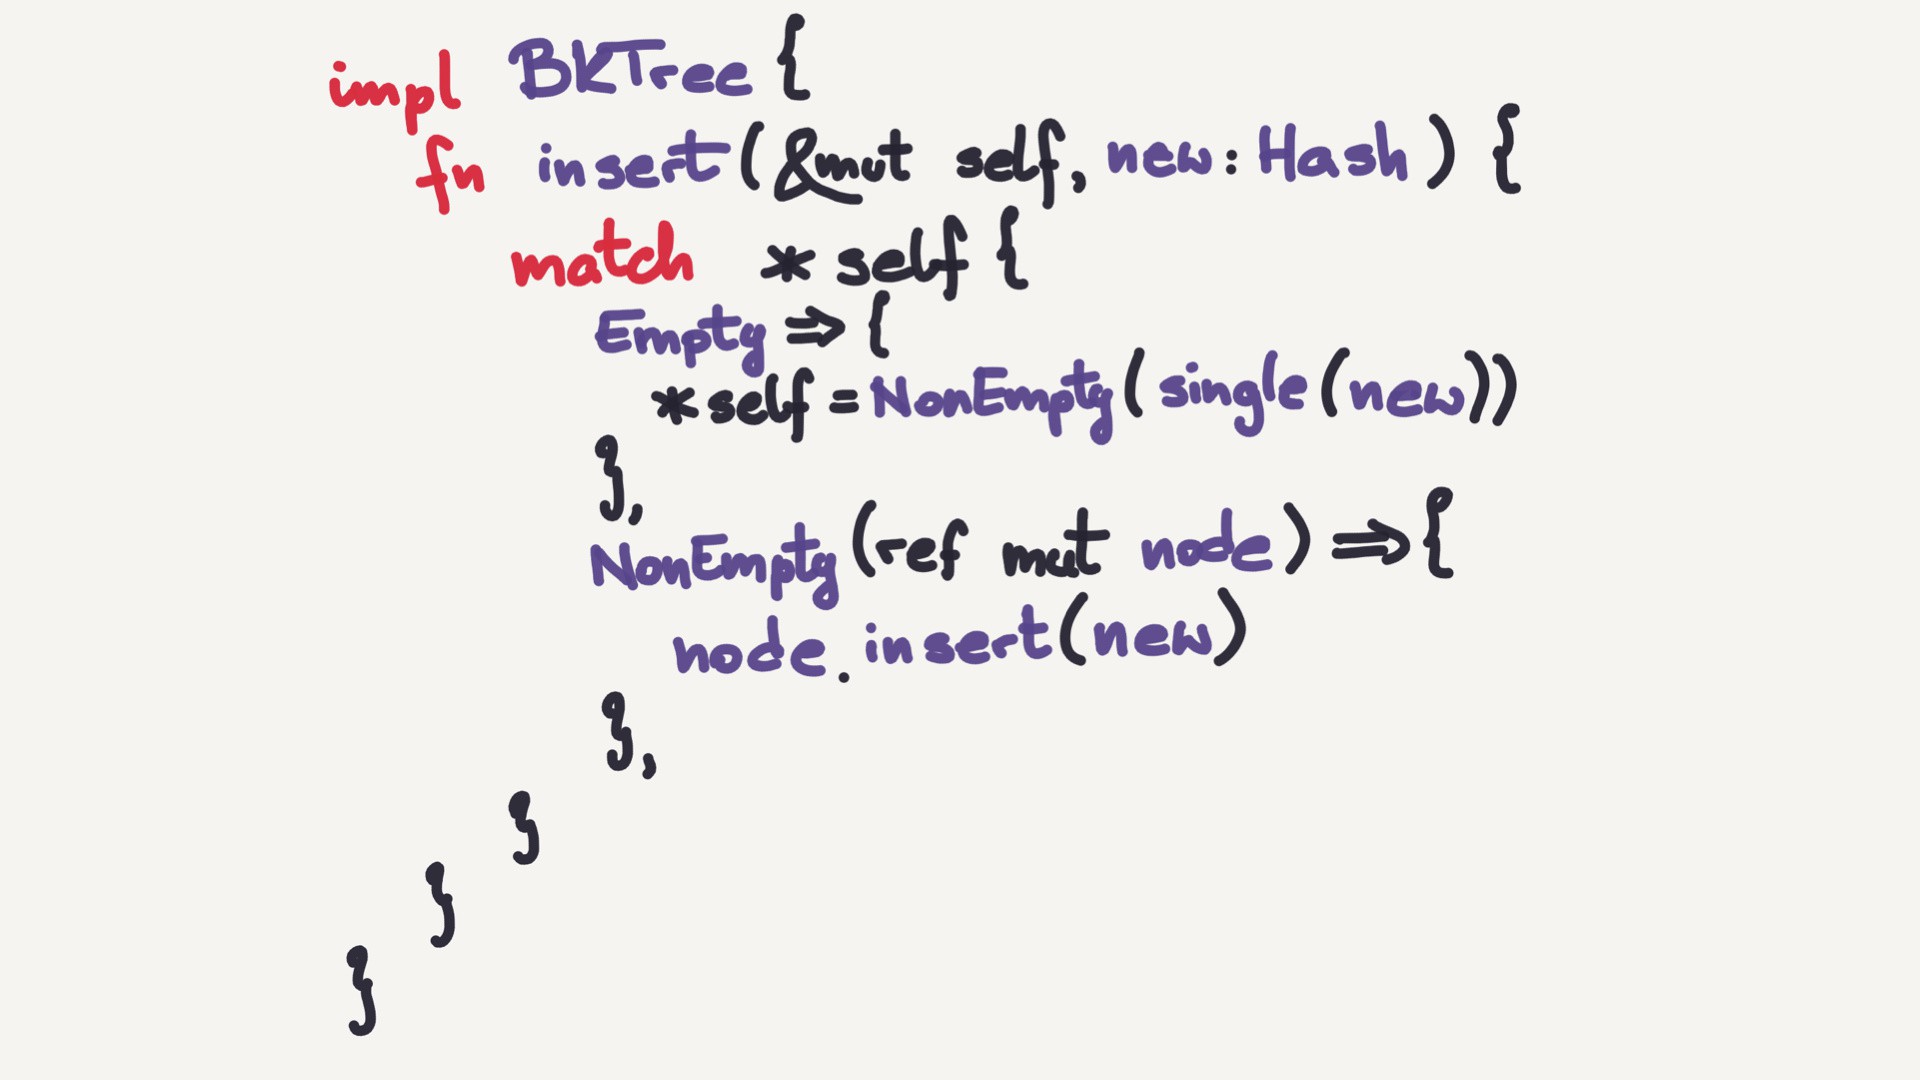 impl BKTree {
fn insert(&mut self, new: Hash) {
match *self {
Empty => {
*self = NonEmpty(single(new))
},
NonEmpty(ref mut node) => {
node.insert(new)
},
}
}
}